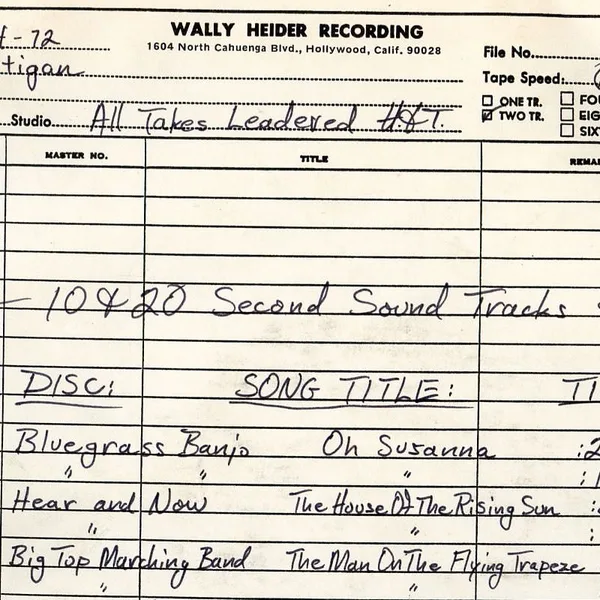 WALLY HEIDER RECORDING
1604 North Cahuenga Blvd., Hollywood, Calif. 90028
-72
File No.
tigan
Tape Speed:
ONE TR.
TWO TR.
Studio All Takes Leadered H&T.
MASTER NO. TITLE
10 & 20 Second Sound Tracks
DISC: SONG TITLE:
Bluegrass Banjo Oh Susanna
" " "
Hear and Now The House Of The Rising Sun
" "
Big Top Marching Band The Man On The Flying Trapeze
" "